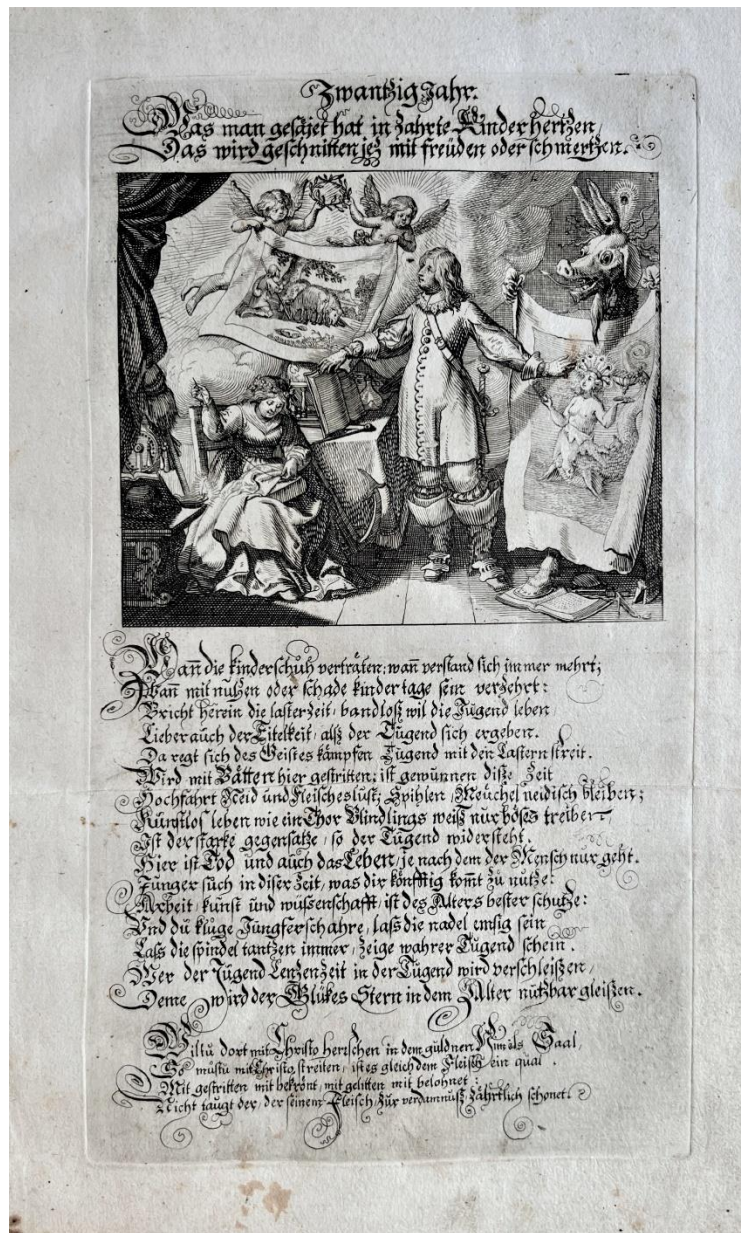 Zwantzig Jahr.
Was man gesäjet hat in Zahrte Kinder hertzen,
Das wird geschnitten jez mit freüden oder schmertzen.
Wañ die kinderschüh verträten: wañ verstand sich immer mehrt;
Wañ mit nutzen oder schade kinder tage sein verzehrt:
Bricht herein die lasterzeit, bandloß wil die Jügend leben,
Lieber auch der Eitelkeit, alß der Tügend sich ergeben.
Da regt sich des Geistes kämpfen Tügend mit den Lastern streit.
Wird mit Bätten hier gestritten; ist gewünnen diße Zeit
Hochfahrt Neid und fleischeslüst; Spihlen, Meüchel neidisch bleiben;
Künstlos leben wie ein Thor Blindlings weiß nur böses treiben
Ist der starke gegensatze, so der Tügend widersteht.
Hier ist Tod und auch das Leben, je nach dem der Mensch nur geht.
Jünger süch in diser Zeit, was dir könfftig komt zü nütze:
Arbeit, kunst und wüssenschafft, ist des Alters bester schutze:
Vnd dü klüge Jüngferschahre, lass die nadel emsig sein
Lass die spindel tantzen immer, zeige wahrer Tügend schein.
Wer der Jügend Lenzenzeit in der Tügend wird verschleißen,
Deme wird der Glükes Stern in dem Alter nützbar gleißen.
Wiltü dort mit Christo herrschen in dem güldnen Himels Saal,
So müstü mit Christo streiten, ist es gleich dem Fleisch ein qual.
Mit gestritten mit bekrönt, mit gelitten mit belohnet:
Nicht taugt der, der seinem Fleisch, zür verdamnüß, zährtlich schonet.